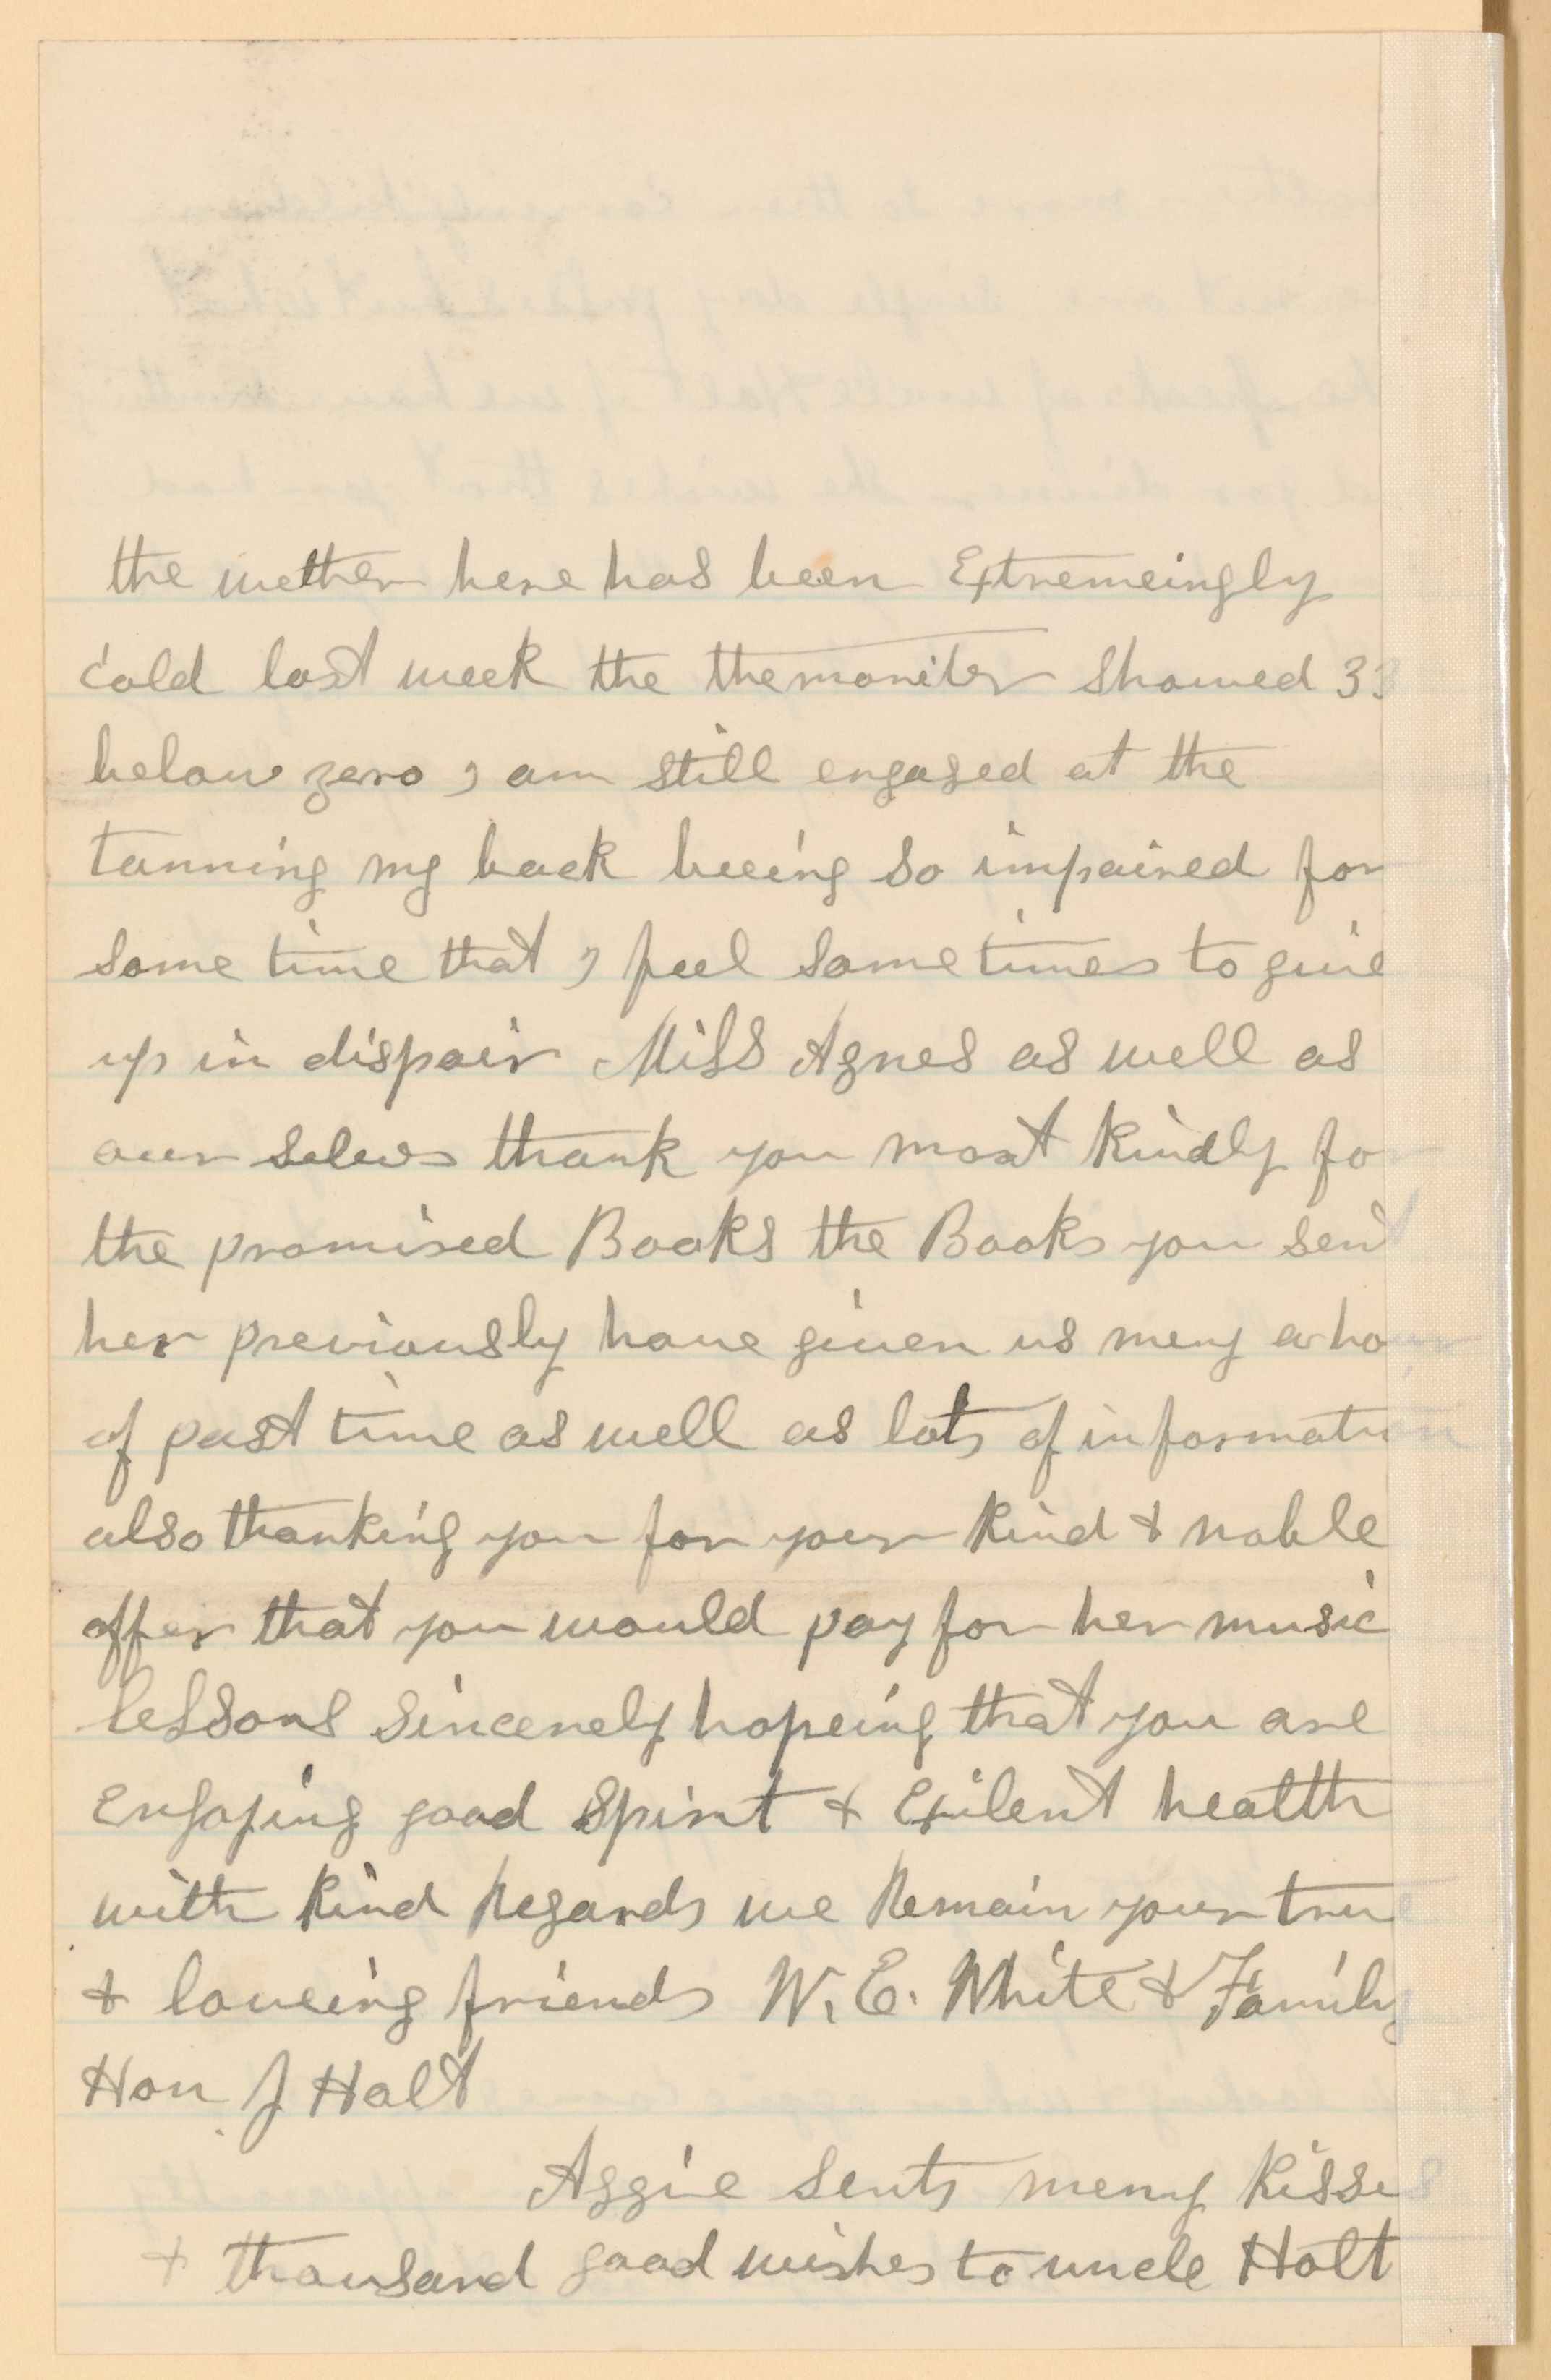 the wether here has been Extremeingly
cold last week the themoniter showed 33
below zero I am still engaged at the
tanning my back beeing so impaired for
some time that I feel some times to give
up in dispair Miss Agnes as well as
our selves thank you most kindly for
the promised Books the Books you sent
her previously have given us meny a hour
of past time as well as lots of information
also thanking you for your kind & noble
offer that you would pay for her music
lessons sincerely hopeing that you are
Enjoying good Spirit & Exilent health
with kind Regards we Remain your true
& loveing friends W. E. White & Family
Hon J Holt
Aggie sents meny kisses
& thousand good wishes to uncle Holt